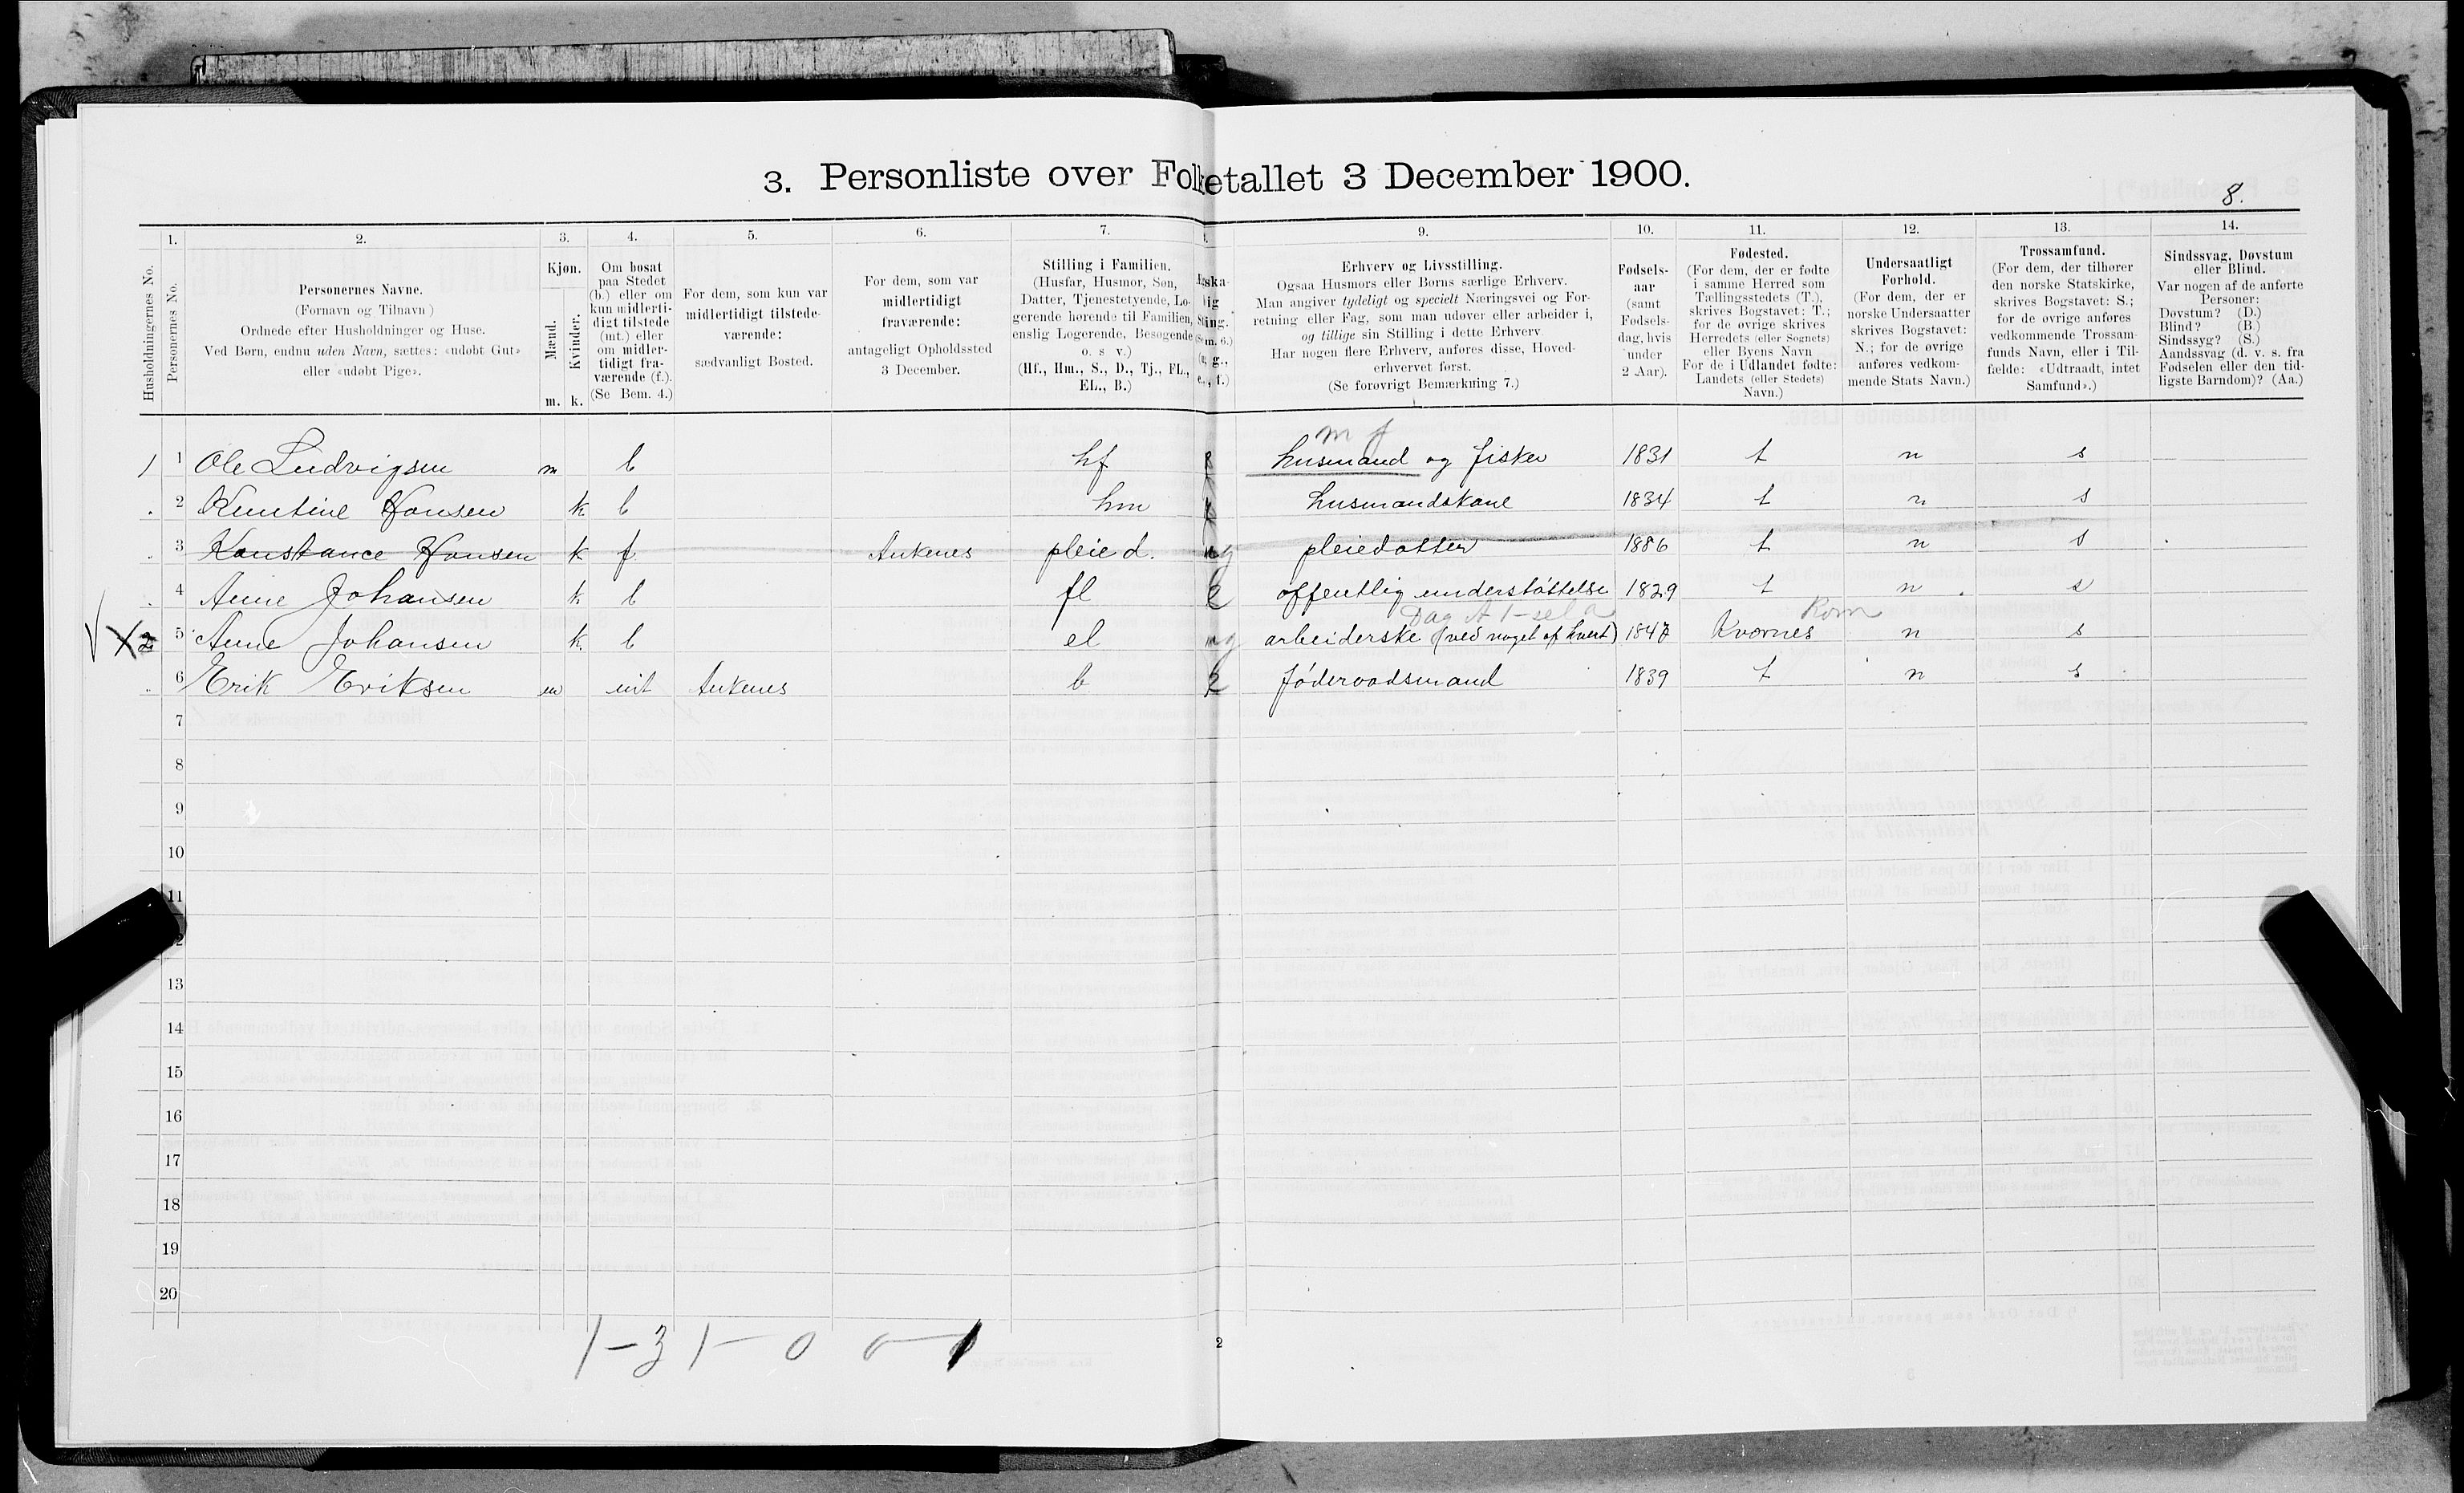 3. Personliste over Folketallet 3 December 1900.
8.
Husholdningernes No.
1.
Personernes No.
2.
Personernes Navne.
(Fornavn og Tilnavn)
Ordnede efter Husholdninger og Huse.
Ved Børn, endnu uden Navn, sættes: «udøbt Gut»
eller «udøbt Pige».
3.
Kjøn.
Mænd.
Kvinder.
m. k.
4.
Om bosat
paa Stedet
(b.) eller om
kun midlerti-
digt tilstede
(mt.) eller
om midler-
tidigt fra-
værende (f.).
(Se Bem. 4.)
5.
For dem, som kun var
midlertidigt tilstede-
værende:
sædvanligt Bosted.
6.
For dem, som var
midlertidigt
fraværende:
antageligt Opholdssted
3 December.
7.
Stilling i Familien.
(Husfar, Husmor, Søn,
Datter, Tjenestetyende, Lo-
gerende hørende til Familien,
enslig Logerende, Besøgende
o. s v.)
(Hf., Hm., S., D., Tj., FL.,
EL., B.)
9.
Erhverv og Livsstilling.
Ogsaa Husmors eller Børns særlige Erhverv.
Man angiver tydeligt og specielt Næringsvei og For-
retning eller Fag, som man udøver eller arbeider i,
og tillige sin Stilling i dette Erhverv.
Har nogen flere Erhverv, anføres disse, Hoved-
erhvervet først.
(Se forøvrigt Bemærkning 7.)
10.
Fødsels-
aar
(samt
Fødsels-
dag, hvis
under
2 Aar).
11.
Fødested.
(For dem, der er fødte
i samme Herred som
Tællingsstedets (T.),
skrives Bogstavet: T.;
for de øvrige skrives
Herredets (eller Sognets)
eller Byens Navn
For de i Udlandet fødte:
Landets (eller Stedets)
Navn.)
12.
Undersaatligt
Forhold.
(For dem, der er
norske Undersaatter
skrives Bogstavet:
N.; for de øvrige
anføres vedkom-
mende Stats Navn.)
13.
Trossamfund.
(For dem, der tilhører
den norske Statskirke,
skrives Bogstavet: S.;
for de øvrige anføres
vedkommende Trossam-
funds Navn, eller i Til-
fælde: «Udtraadt, intet
Samfund».)
14.
Sindssvag, Døvstum
eller Blind.
Var nogen af de anførte
Personer:
Døvstum? (D.)
Blind? (B.)
Sindssyg? (S.)
Aandssvag (d. v. s. fra
Fødselen eller den tid-
ligste Barndom)? (Aa.)
m f
1 1 Ole Ludvigsen m b hf g husmand og fisker 1831 t n s
2 Kuntine Hansen k b hm g husmandskone 1834 t n s
3 Konstance Hansen k f Ankenes pleie d. ug pleiedatter 1886 t n s
4 Anne Johansen k b fl e offentlig understøttelse 1829 t n s
2 5 Anne Johansen k b el ug arbeiderske (ved noget af hvert) 1847 Kvornes n s
6 Erik Eriksen m mt Ankenes b e føderaadsmand 1839 t n s
7
8
9
10
11
12
13
14
15
16
17
18
19
20
1-3 1-0 0-1
2